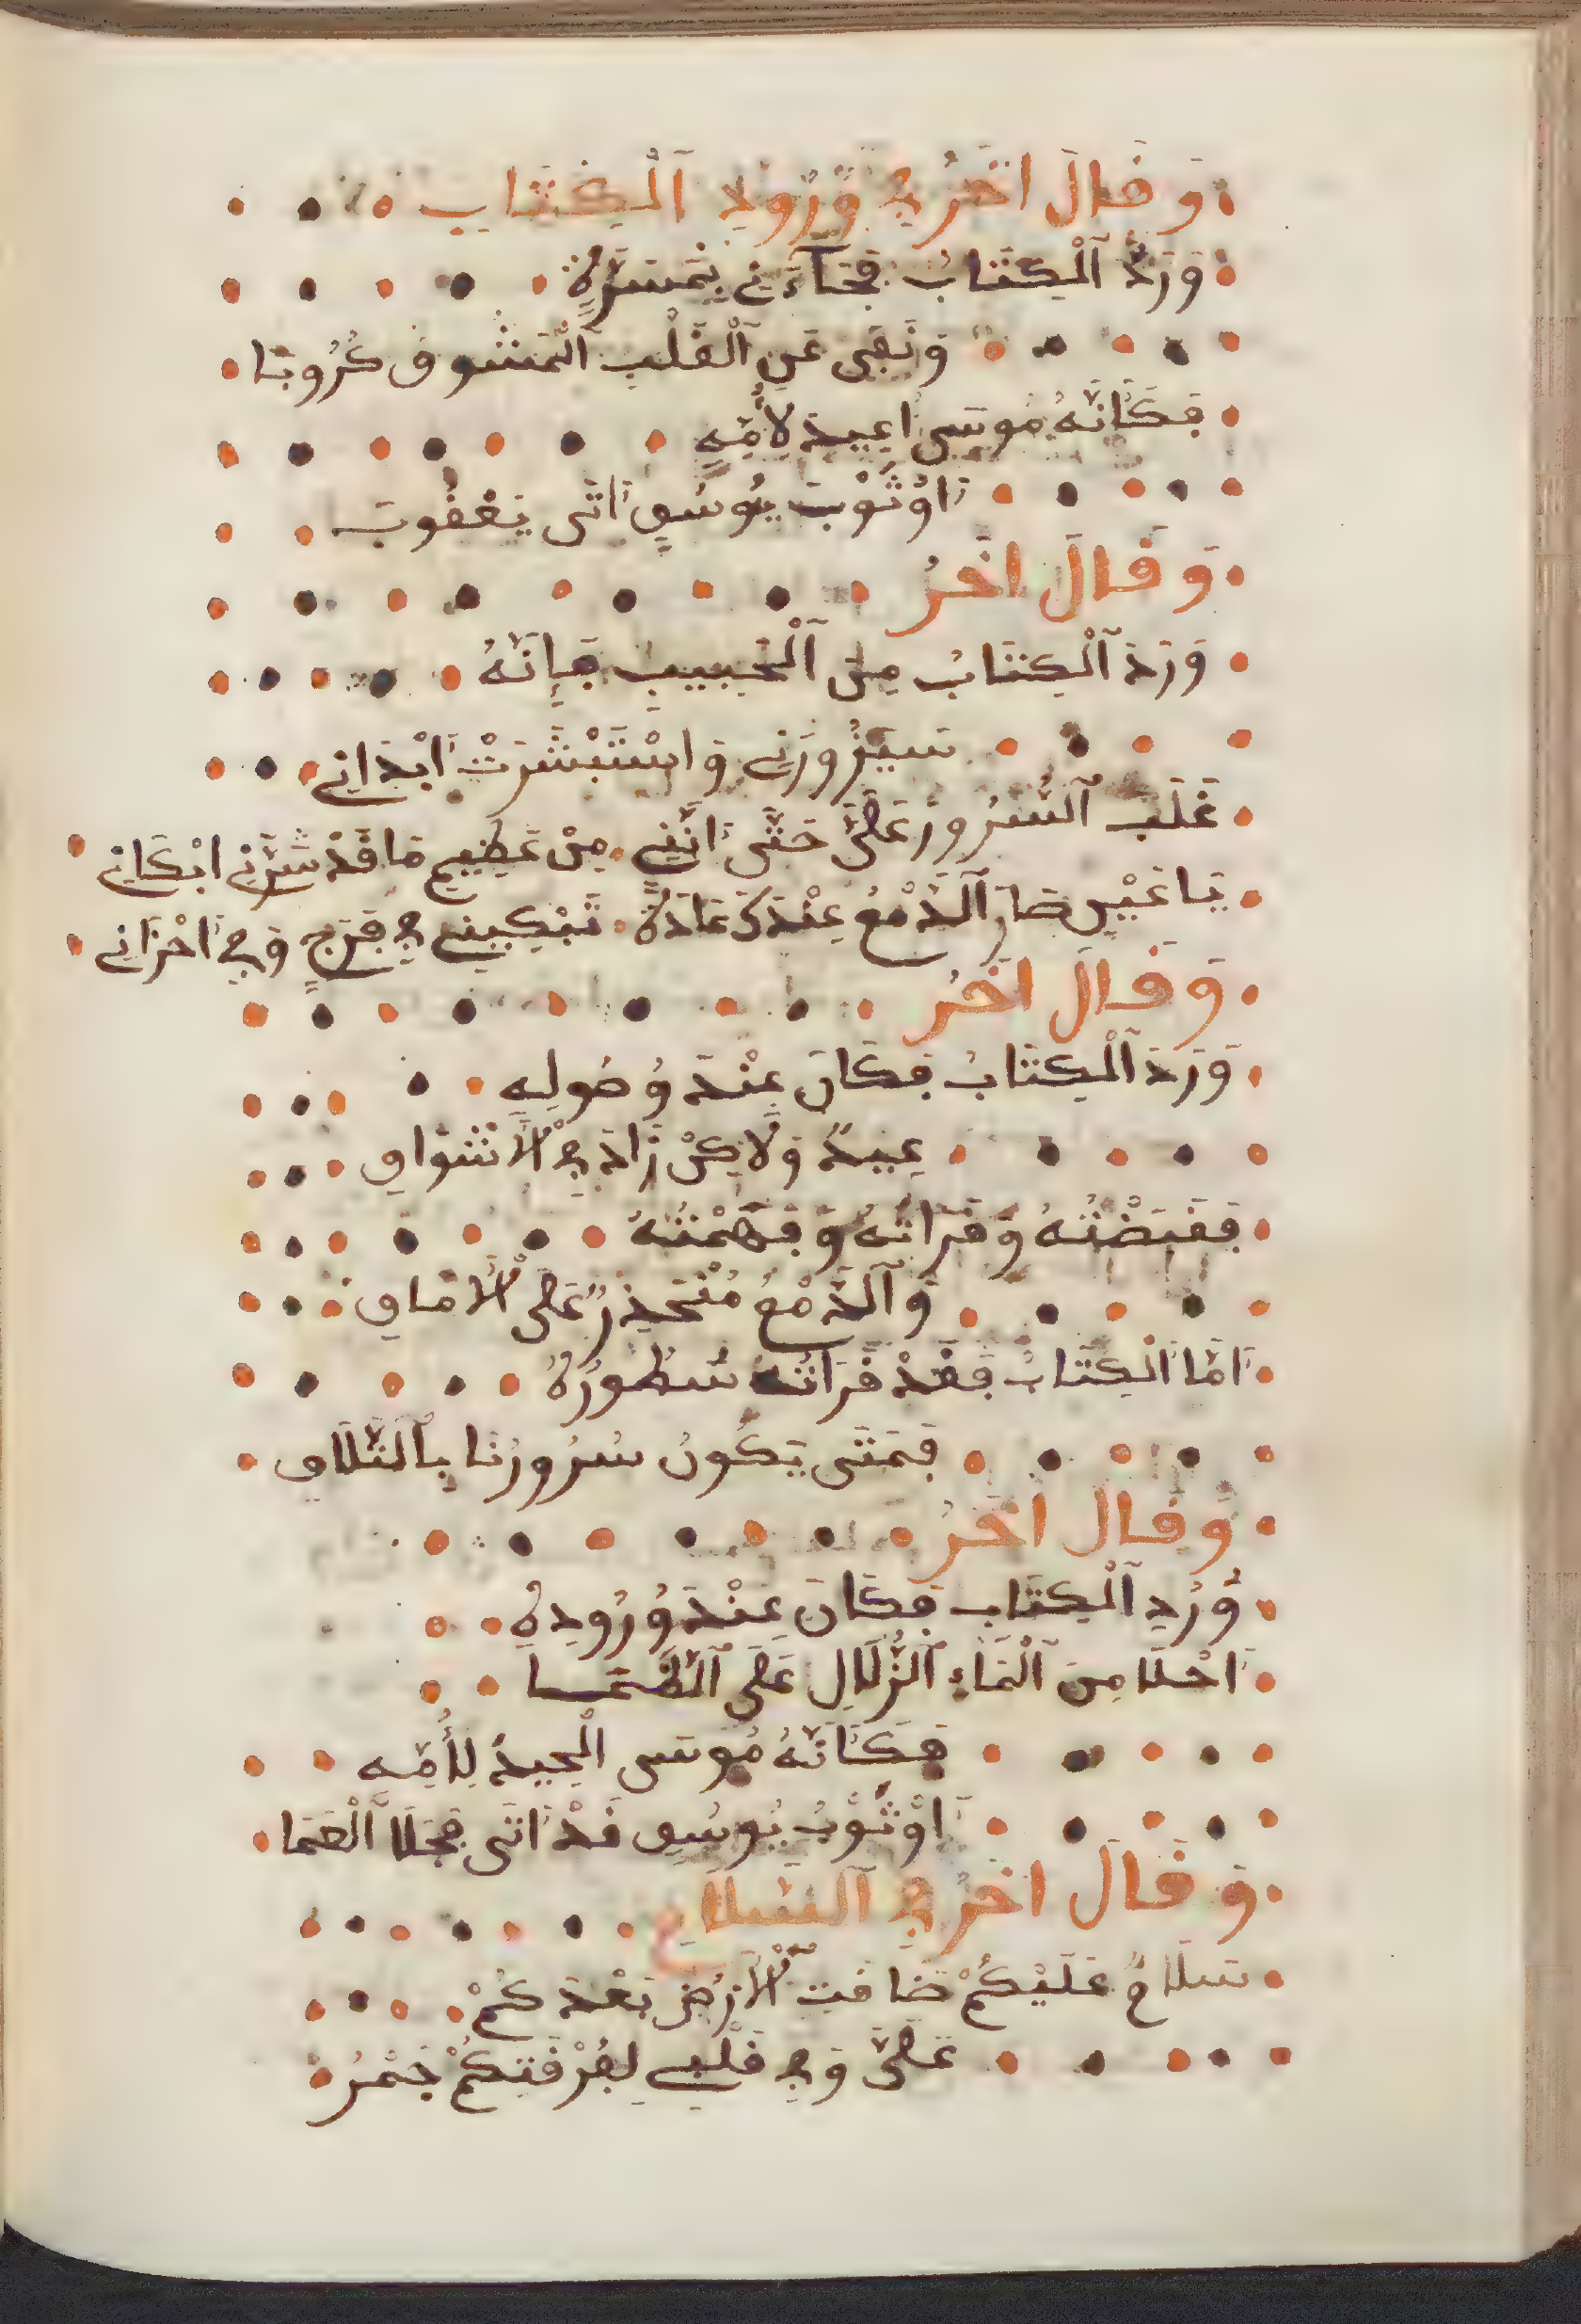 وَقَالَ اخَرُ فِي وُرُودِ اَلْكِتَابِ
وَرَدَ اَلْكِتَابُ فَجَآءَنِي بِمَسَرَّةٍ
وَنَفَى عَنِ اَلْقَلْبِ اَلْمَشُوقِ كُرُوبَا
فَكَأَنَّهُ مُوسَى اعِيدَ لِأُمِّهِ
اَوْ ثَوْبَ يُوسُفٍ اَتَى يَعْقُوبَ
وَقَالَ اخَرُ
وَرَدَ اَلْكِتَابُ مِنَ اَلْحَبِيبِ بِإِنَّهُ
سَيَزُورَنِي وَاسْتَبْشَرَتْ اَبْدَانِي
غَلَبَ اَلسُّرُورُ عَلَيَّ حَتَّى اَنَّنِي مِنْ عَظِيمِ مَا قَدْ سَرَّنِي ابْكَانِي
يَا عَيْنِ صَارَ اَلدَّمْعُ عِنْدَكَ عَادَةً تَبْكِينَ فِي فَرَحٍ وَفِي اَحْزَانِي
وَقَالَ اخَرُ
وَرَدَ اَلْكِتَابُ فَكَانَ عِنْدَ وُصُولِهِ
عِيدٌ وَلَاكِنْ زَادَ فِي اْلَاشْوَاقِ
فَقَبَضْتُهُ وَقَرَاتُهُ وَفَهَّمْتُهُ
وَاَلدَّمْعُ مُنْحَدِرٌ عَلَى اْلَامَاقِ
اَمَّا اَلْكِتَابُ فَقَدْ قَرَاتُ سُطُورَهُ
فَمَتَى يَكُونُ سُرُورُنَا بِالتَّلَاقِ
وَقَالَ اخَرُ
وَرَدَ اَلْكِتَابُ فَكَانَ عِنْدَ وُرُودِهِ
اَحْلَا مِنَ اَلْمَاءِ اَلزُّلَالِ عَلَى اَلظَّمَا
فَكَأَنَّهُ مُوسَى الْعِيدُ لِأُمِّهِ
اَوْ ثَوْبُ يُوسُفِ قَدْ اَتَى فَجَلَا اَلْعَمَا
وَقَالَ اخَرُ فِي اَلسَّلَامِ
سَلَامٌ عَلَيْكُمْ ضَاقَتِ اْلَارْضُ بَعْدَكُمْ
عَلَيَّ وَفِي قَلْبِي لِفُرْقَتِكُمْ جَمْرُ